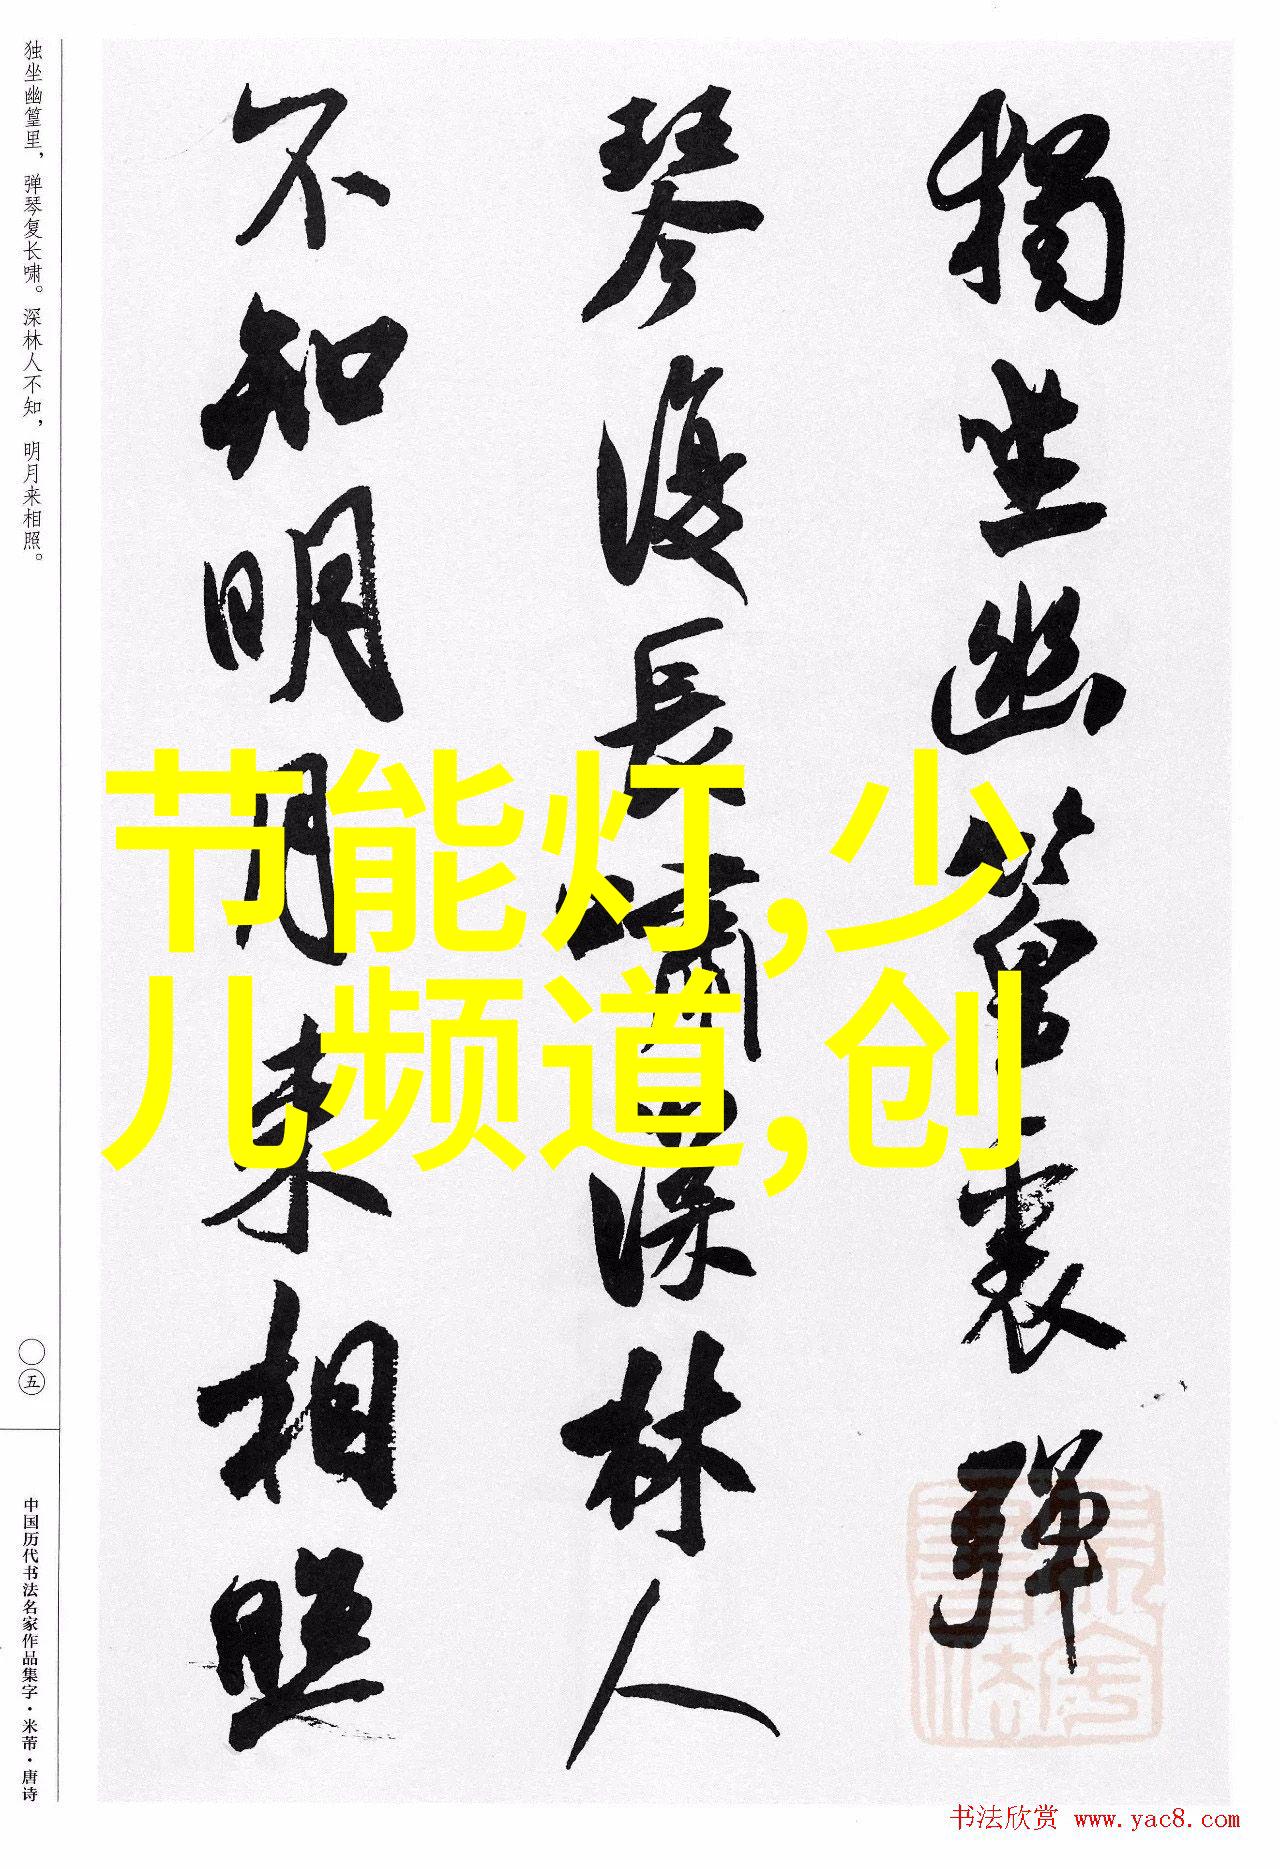 独坐幽篁里，弹琴复长啸。深林人不知，明月来相照。
〇五
中国历代书法名家作品集字·米芾·唐诗
獨坐幽篁裏彈
琴復長嘯深林人
不知明月來相照
节能灯,少
儿频道,创
书法欣赏 www.yac8.com